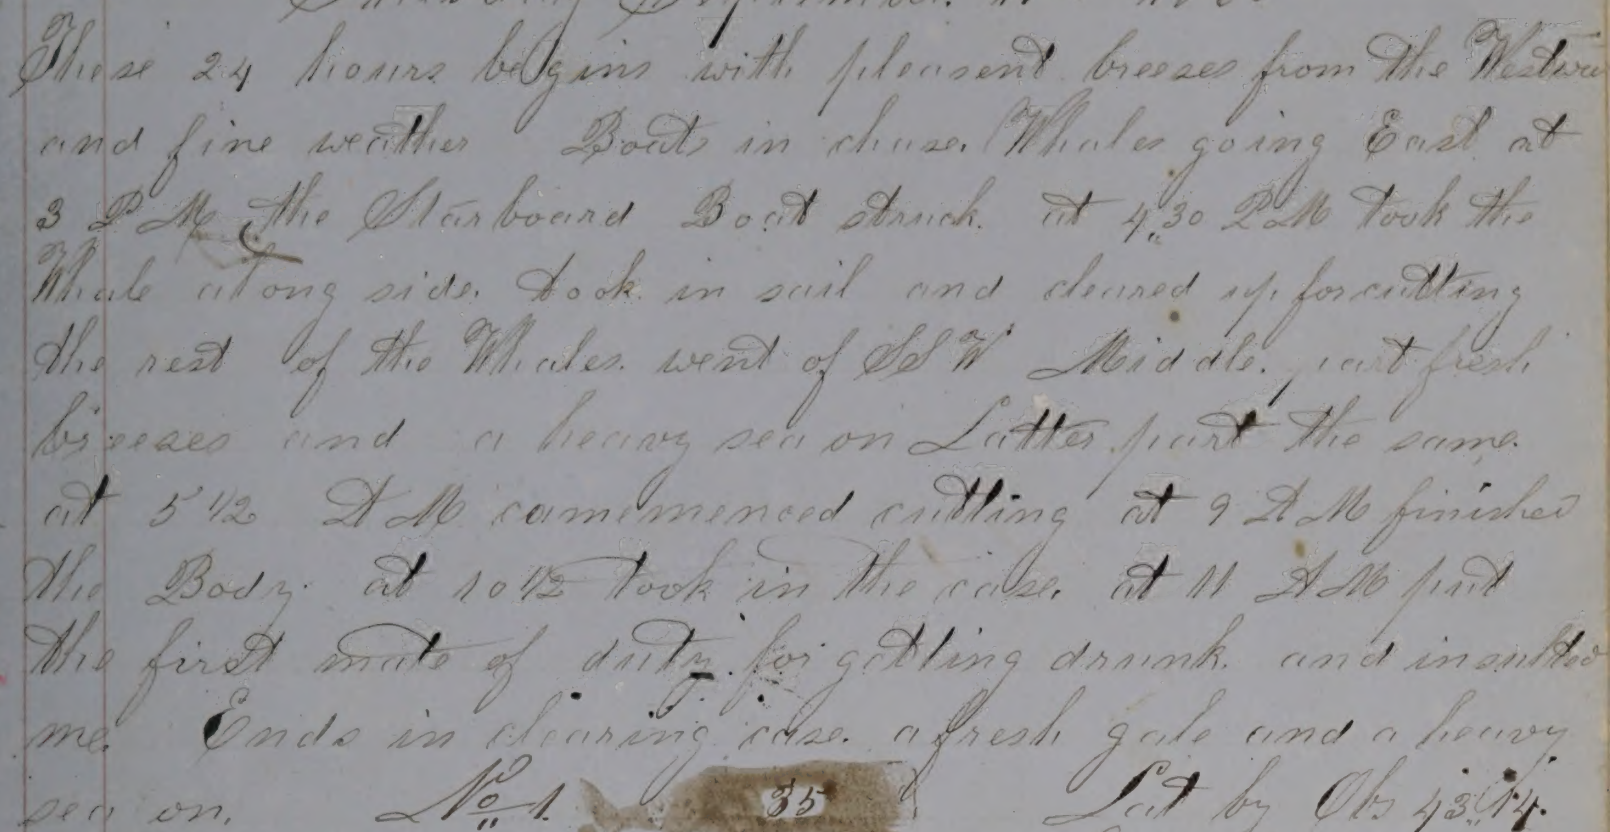 These 24 hours begins with pleasent breeses from the
and fine weather Boats in chase. Whales going East at
3 P M the Starboard Boat struck. at 4,,30 P M took the
Whale along side. took in sail and cleared up for cutting
the rest of the Whales. went of S S W Middle. part fresh
breezes and a heavy sea on Latter part the same.
at 5 1/2 A M camemenced cutting at 9 A M finished
the Body. at 10 1/2 took in the case. at 11 A M put
the first mate of duty for gatting drunk. and insulted
me. Ends in clearing case. a fresh gale and a heavy
sea on. No 1. 35 Lat by Obs 43,,14.